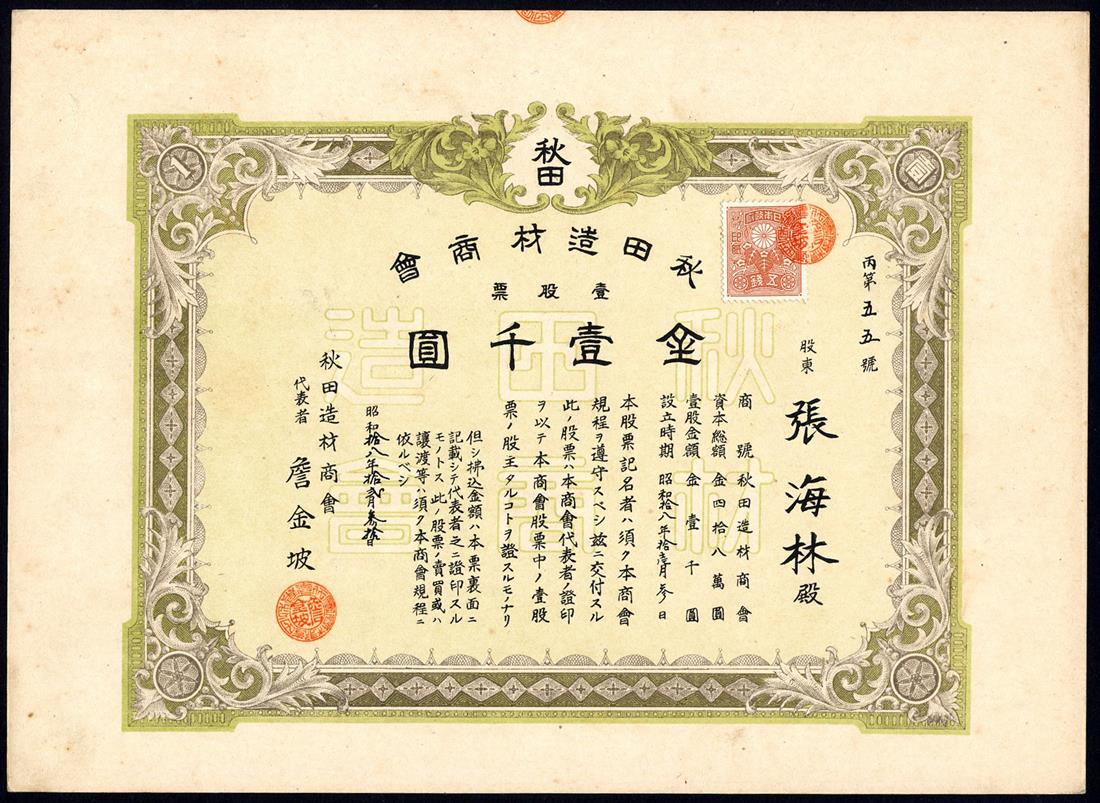 秋田
秋田造材商會
壹股票
金壹千圓
丙第五五號
股東 張海林殿
商號秋田造材商會
資本總額金四拾八萬圓
壹股金額金壹千圓
設立時期昭和拾八年拾壹月參日
本股票記名者ハ須ク本商會
規程ヲ遵守スベシ茲ニ交付スル
此ノ股票ハ本商會代表者ノ證印
ヲ以テ本商會股票中ノ壹股
票ノ股主タルコトヲ證スルモノナリ
但シ拂込金額ハ本票裏面ニ
記載シテ代表者之ニ證印スル
モノトス此ノ股票ノ賣買或ハ
讓渡等ハ須ク本商會規程ニ
依ルベシ
昭和拾八年拾貳月參拾日
秋田造材商會
代表者 詹金坡
秋田造
材商會
五錢